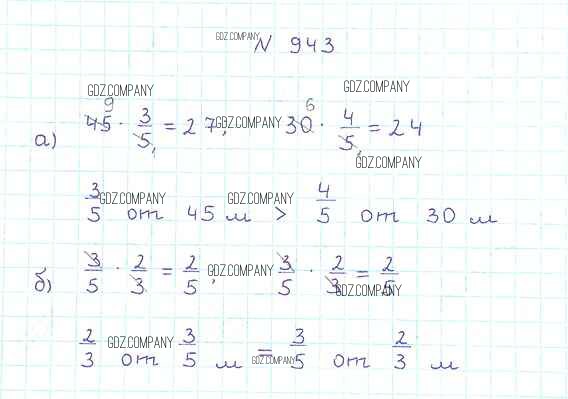 GDZ.COMPANY
N 943
GDZ.COMPANY GDZ.COMPANY
9 6
а) 45 · 3/5 = 27, GDZ.COMPANY 30 · 4/5 = 24
1 1
GDZ.COMPANY
3/5 GDZ.COMPANY от 45 м > GDZ.COMPANY 4/5 от 30 м
б) 3/5 · 2/3 = 2/5, GDZ.COMPANY 3/5 · 2/3 = 2/5
GDZ.COMPANY
2/3 GDZ.COMPANY от 3/5 м = 3/5 от 2/3 м
GDZ.COMPANY